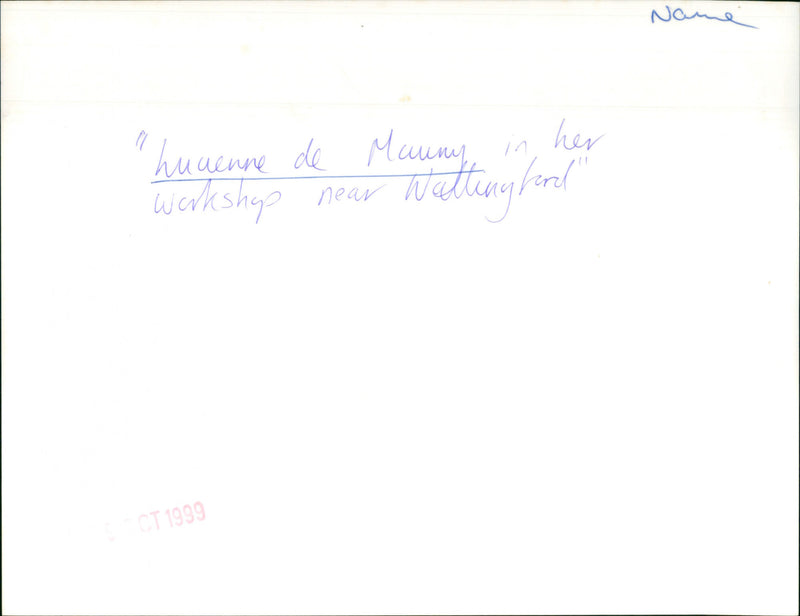 Name
"Lucienne de Mauny in her
workshop near Wallingford"
OCT 1999